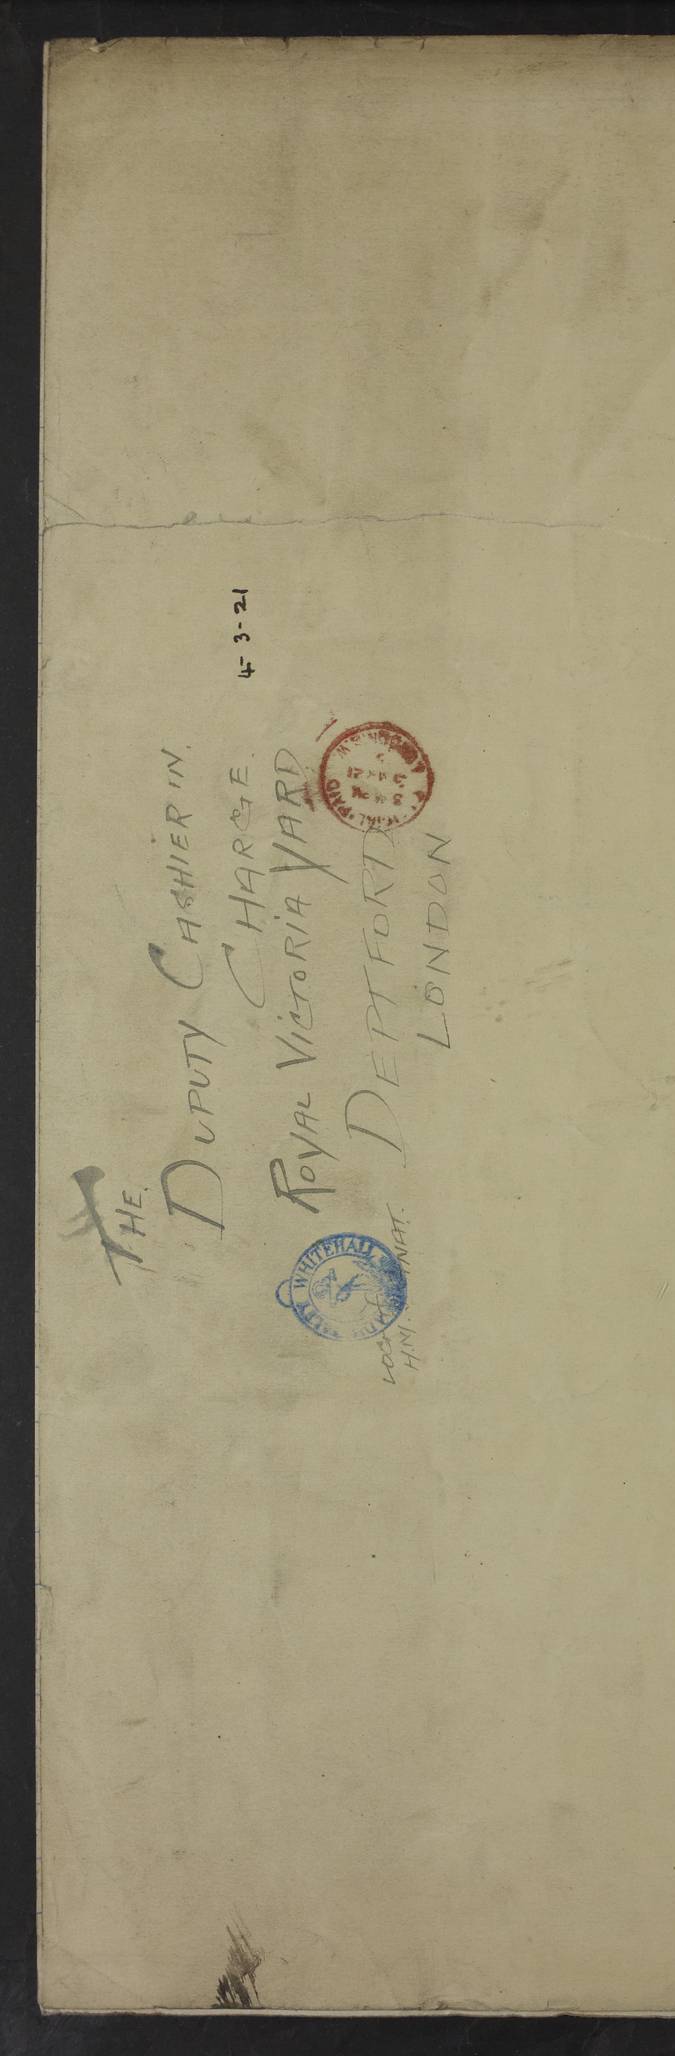 THE.
DUPUTY CASHIER IN.
CHARGE.
4-3-21
ROYAL VICTORIA YARD
DEPTFORD
LONDON
WHITEHALL
PAID
H.M.